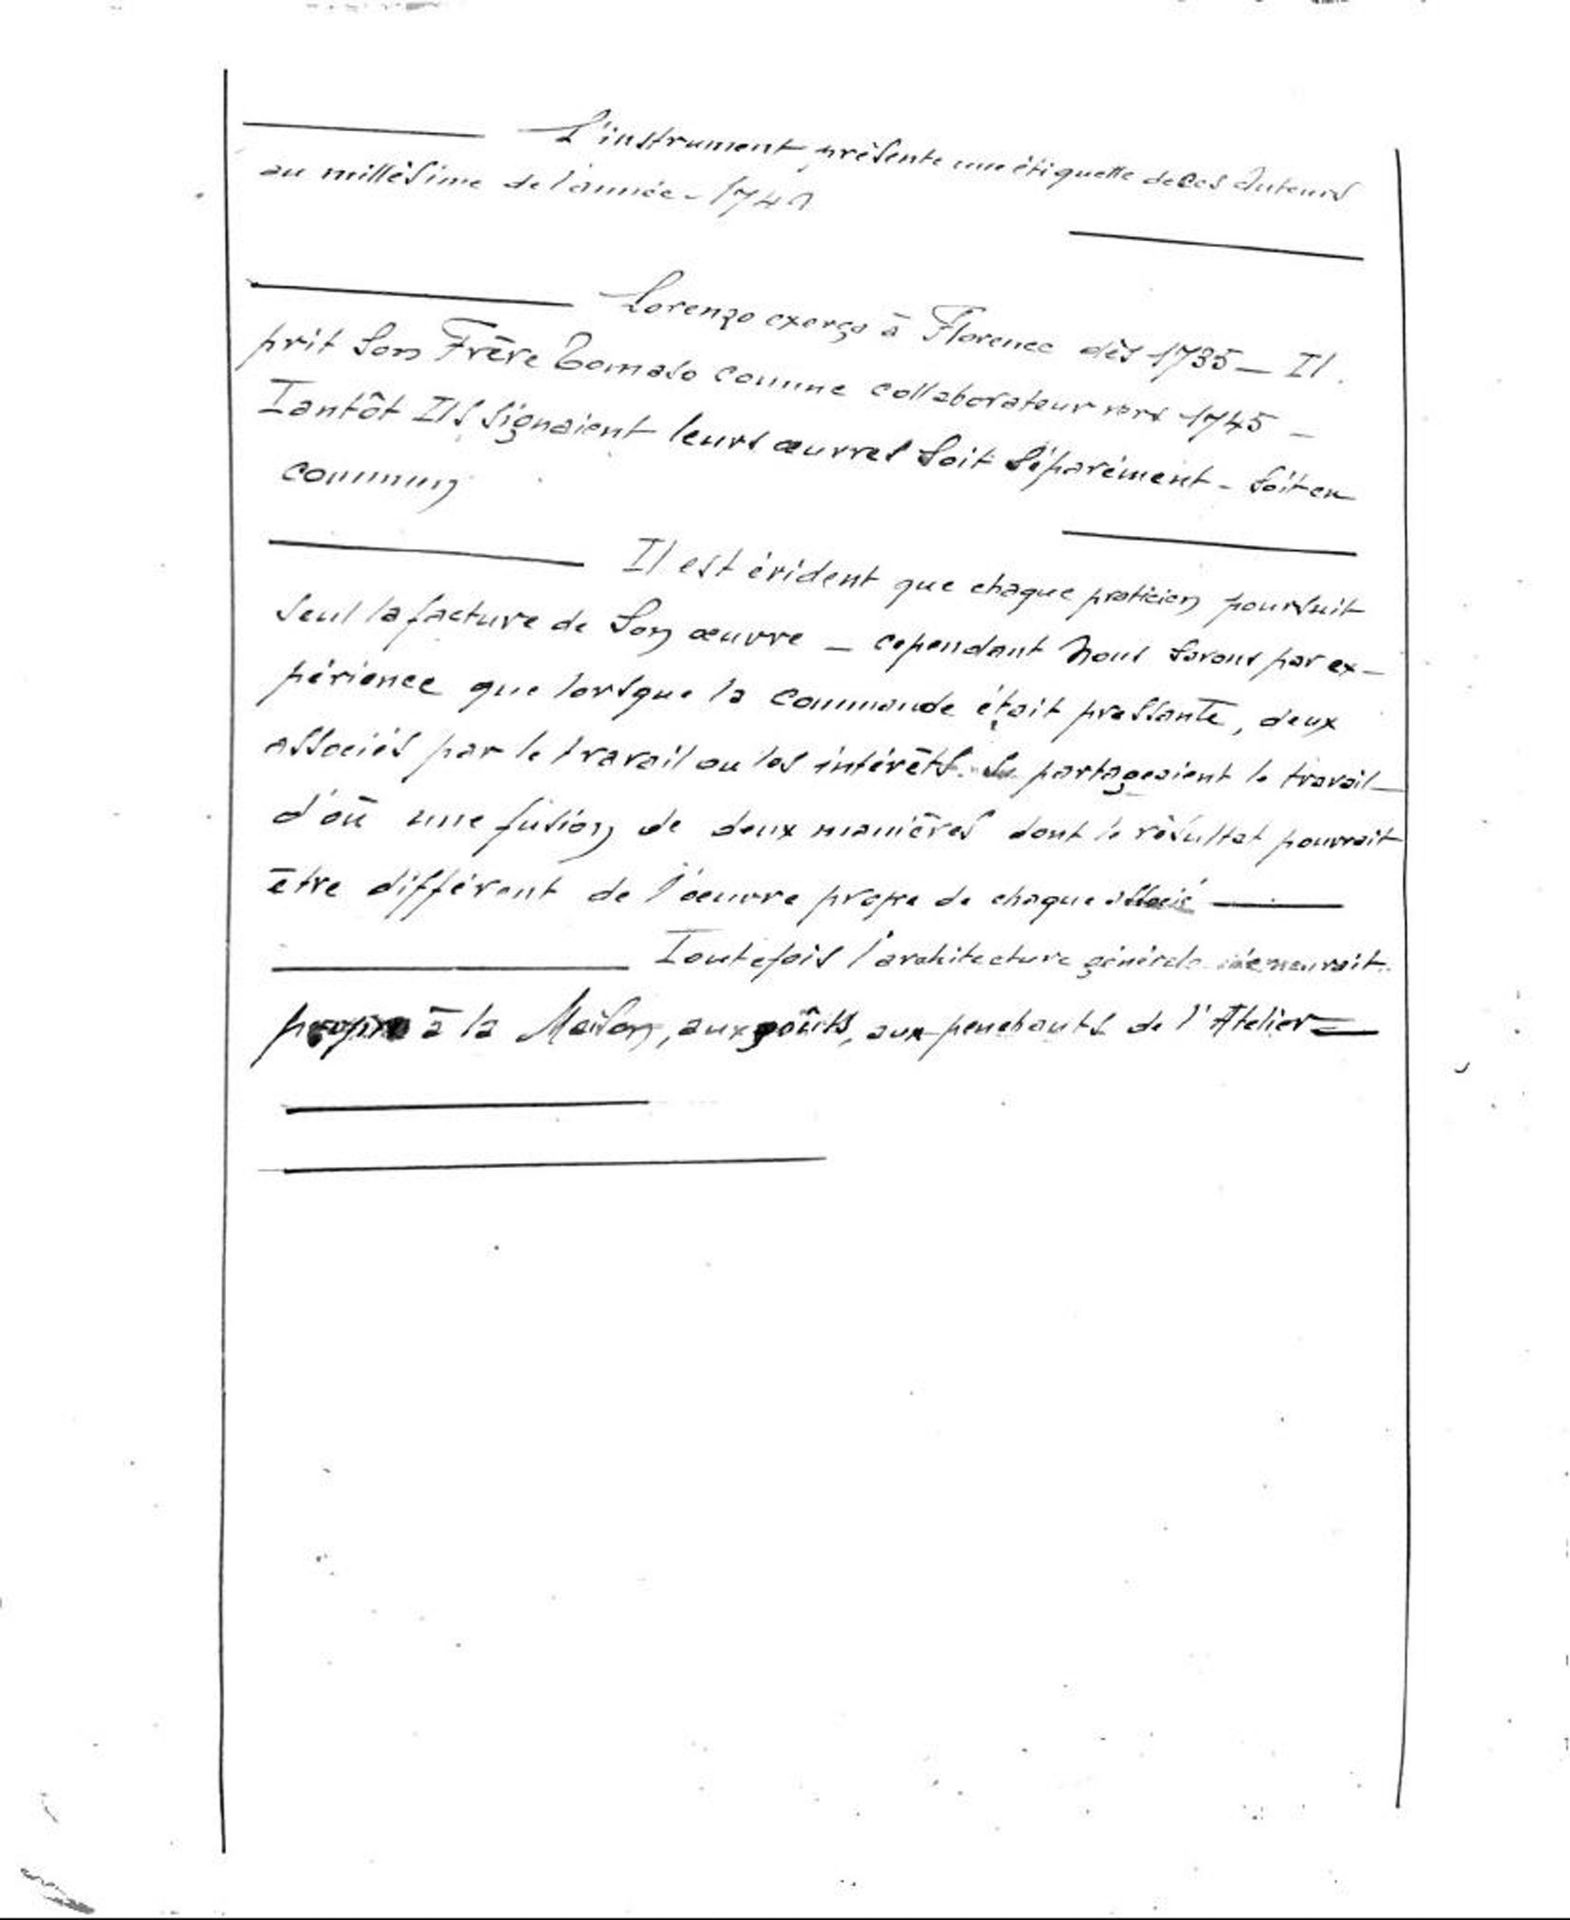 L'instrument présente une étiquette de ces Auteurs
au millésime de l'année - 1741
Lorenzo exerça à Florence dès 1735 — Il
prit Son Frère Tomaso comme collaborateur vers 1745 —
Tantôt Ils Signaient leurs œuvres Soit Séparément - Soit en
commun
Il est évident que chaque praticien poursuit
Seul la facture de Son œuvre — cependant Nous Savons par ex-
périence que lorsque la commande était pressante, deux
associés par le travail ou les intérêts Se partageaient le travail —
d'où une fusion de deux manières dont le résultat pourrait
être différent de l'œuvre propre de chaque associé
Toutefois l'architecture générale demeurait
propre à la Maison, aux goûts, aux penchants de l'Atelier